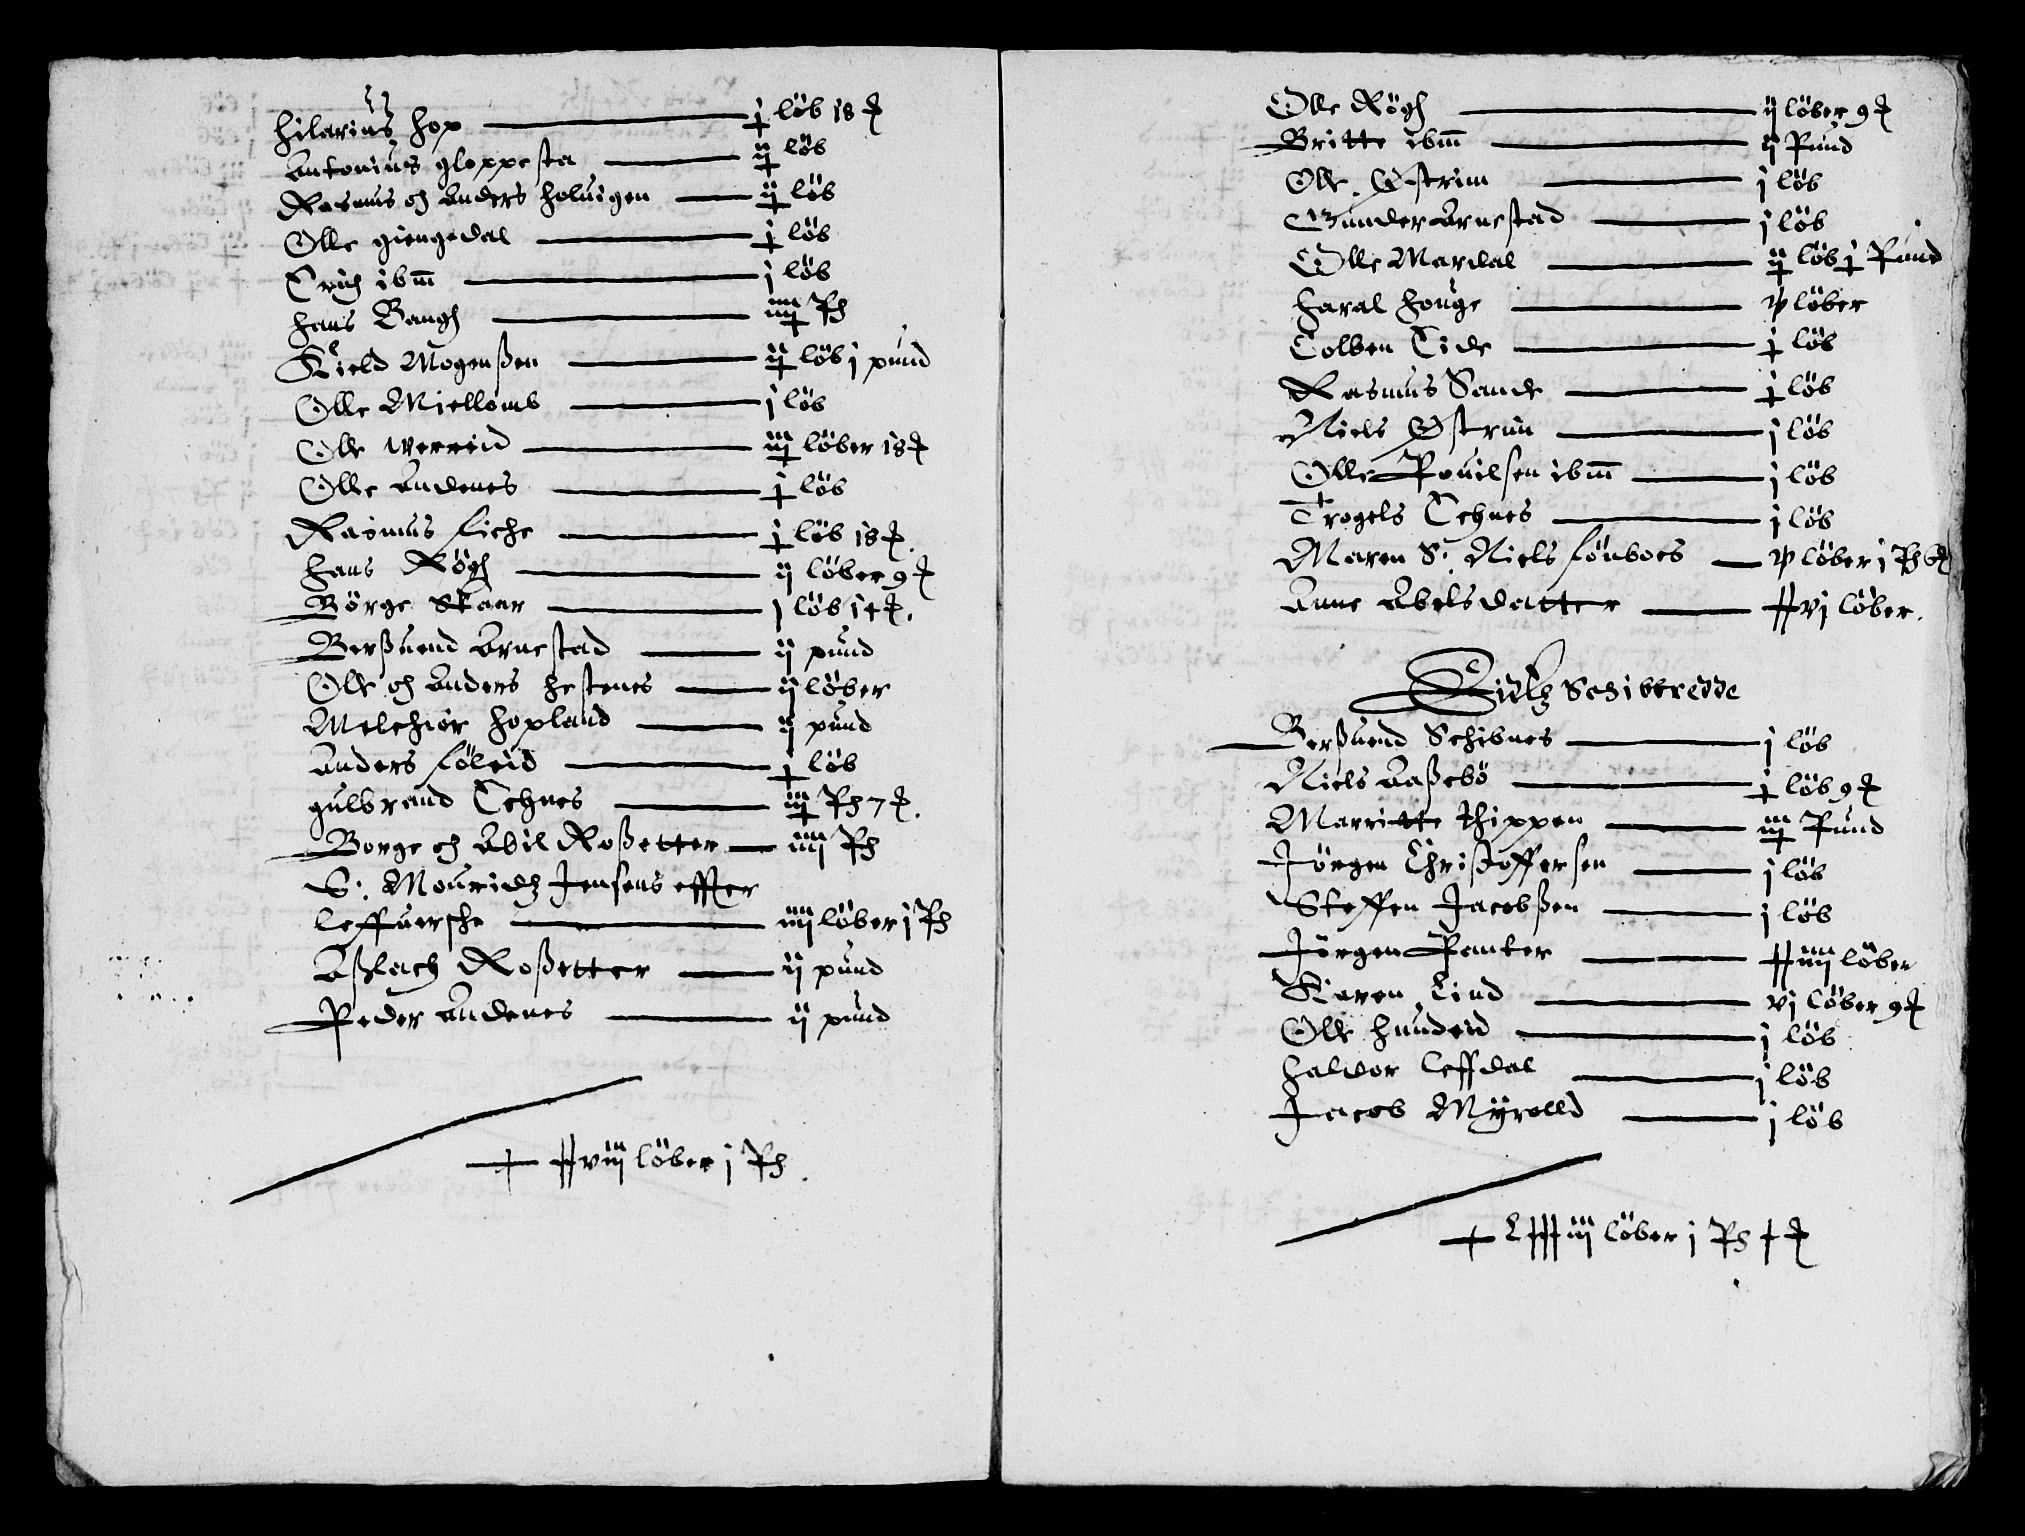 Hilarius Hop — j löb 18 ℔
Antonius gloppesta — ij löb
Rasmus och Anders Holuigen — ij löb
Olle giengedal — j löb
Erich ibm — j löb
Hans Bangh — iiij Pd
Kield Mogenßen — ij löb j pund
Olle Miellomb — j löb
Olle Werreid — iij löber 18 ℔
Olle Andenes — j löb
Rasmus Liche — j löb 18 ℔.
Hans Rögh — ij löber 9 ℔
Börge Skaar — j löb 14 ℔.
Berßuend Arnestad — ij pund
Olle och Anders Hestenes — ij löber
Melchior Hopland — ij pund
Anders Föleid — j löb
gulbrand Tehnes — iij Pd 7 ℔.
Borge och Abil Roßetter — iiij Pd
S: Mouridtz Jensens effter
leffuersche — iiij löber j Pd
Aßlach Roßetter — ij pund
Peder Andenes — ij pund
xxviij löber j Pd.
Olle Rögh — ij löber 9 ℔
Britte ibm — ij Pund
Olle Østrim — j löb
Gunder Arnestad — j löb
Olle Mardal — ij löb j Pund
Haral Houge — v löber
Tolben Eide — j löb
Rasmus Sande — j löb
Niels Østrim — j löb
Olle Pouilsen ibm — j löb
Trogels Tehnes — j löb
Maren S: Niels Fönboes — v löber j Pd 6 ℔
Anne Abelsdatter — xxvj löber.
Eidtz Schibbredde
Berßuend Schibnes — j löb
Niels Aaßebö — j löb 9 ℔
Marritte Hippen — iij Pund
Jörgen Christoffersen — j löb
Steffen Jacobßen — j löb
Jörgen Panter — xxiiij löber
Karen Lind — vj löber 9 ℔
Olle Hundeid — j löb
Halvor Leffdal — j löb
Jacob Myrolld — j löb
Lxxxiij löber j Pd ℔